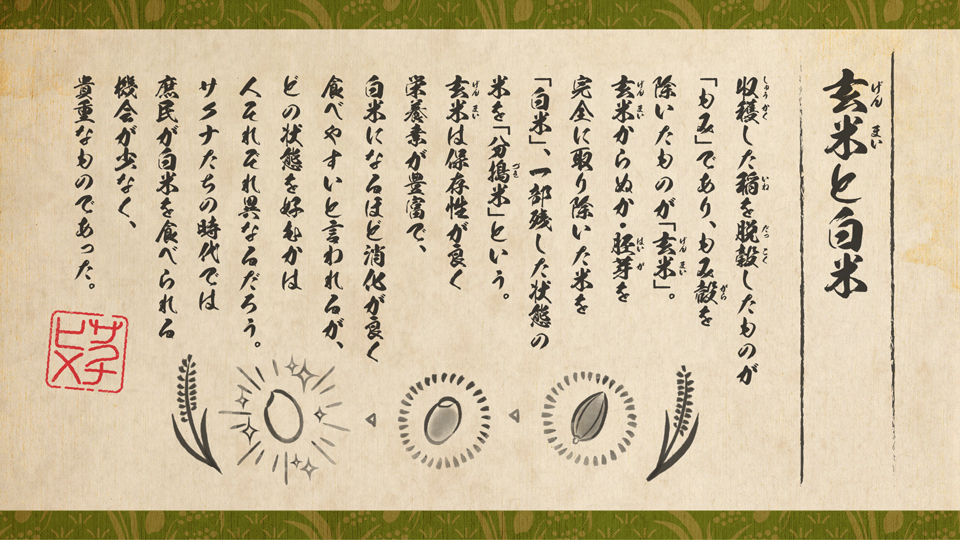 玄米と白米
収穫した稲を脱穀したものが
「もみ」であり、もみ殻を
除いたものが「玄米」。
玄米からぬか・胚芽を
完全に取り除いた米を
「白米」、一部残した状態の
米を「分搗米」という。
玄米は保存性が良く
栄養素が豊富で、
白米になるほど消化が良く
食べやすいと言われるが、
どの状態を好むかは
人それぞれ異なるだろう。
サクナたちの時代では
庶民が白米を食べられる
機会が少なく、
貴重なものであった。
サクナ
ヒメ